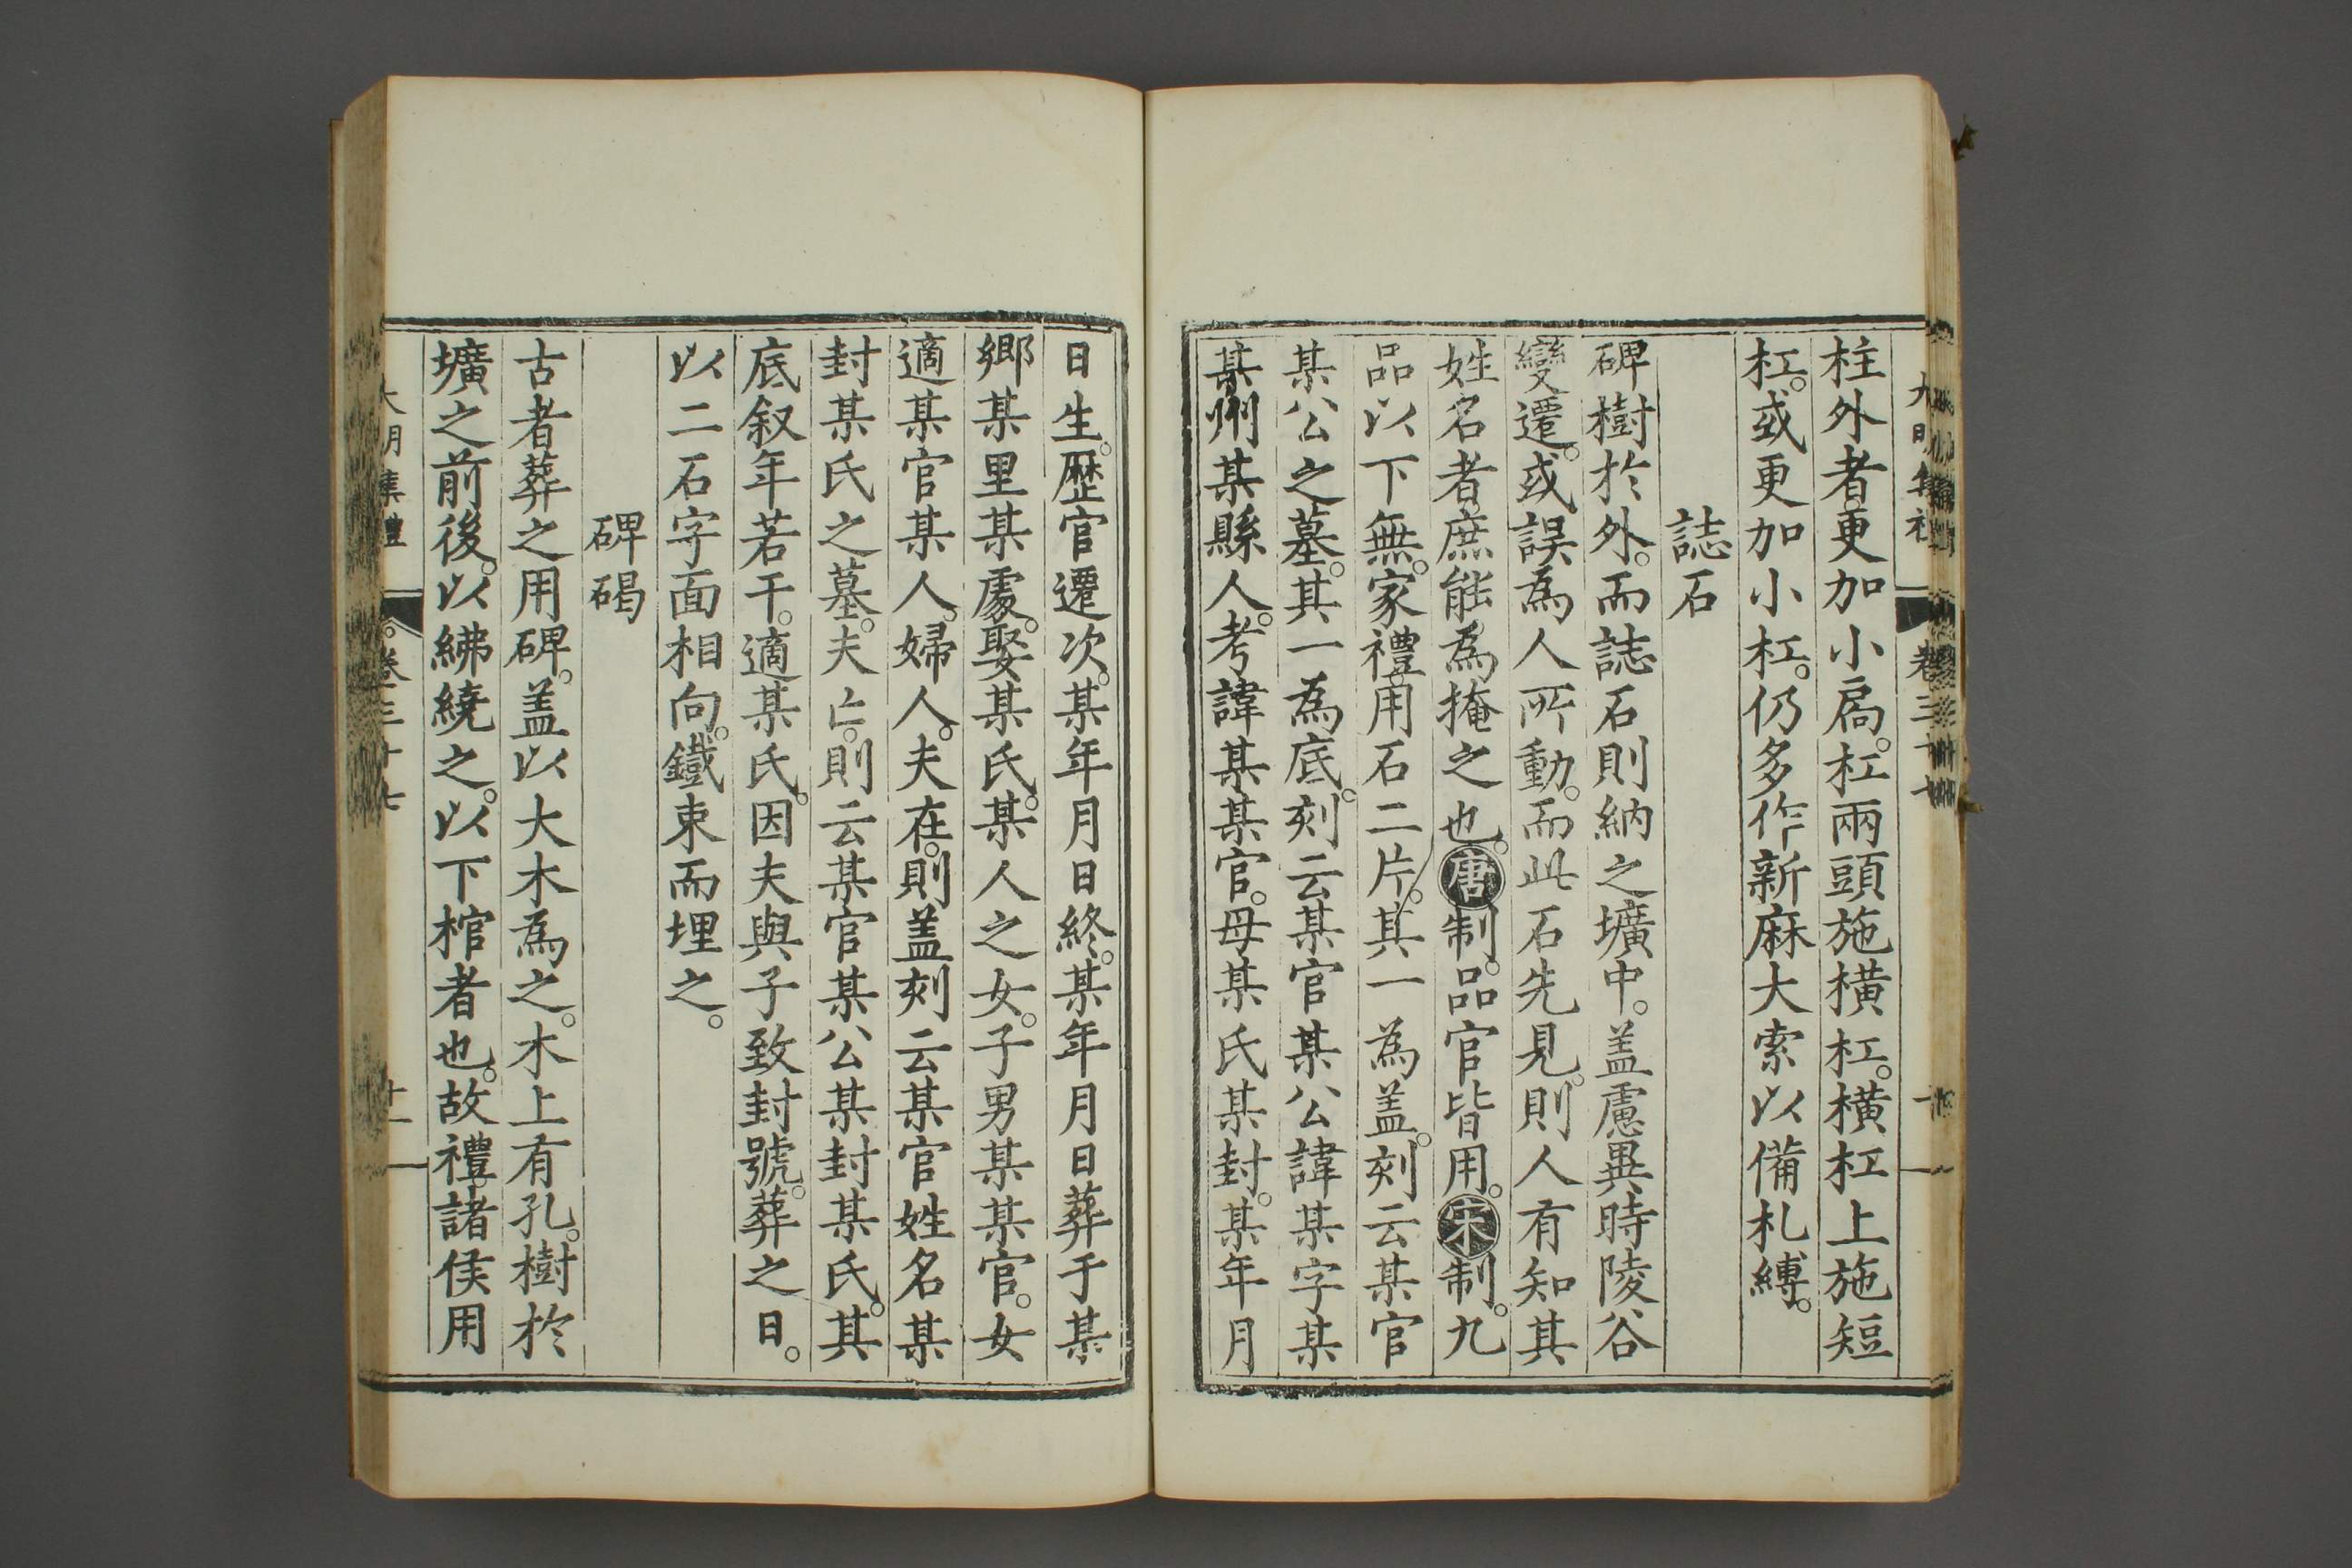 柱外者。更加小扃。杠兩頭施橫杠。橫杠上施短
杠。或更加小杠。仍多作新麻大索以備札縛。
誌石
碑樹於外。而誌石則納之壙中。盖慮異時陵谷
變遷。或誤為人所動。而此石先見。則人有知其
姓名者。庶能為掩之也。唐制。品官皆用。宋制。九
品以下無。家禮。用石二片。其一為盖。刻云某官
某公之墓。其一為底。刻云某官某公諱某字某
某州某縣人。考諱某某官。母某氏某封。某年月
日生。歷官遷次。某年月日終。某年月日葬于某
鄉某里某處。娶某氏。某人之女。子男某某官。女
適某官某人。婦人。夫在。則盖刻云某官姓名某
封某氏之墓。夫亡。則云某官某公某封某氏。其
底叙年若干。適某氏。因夫與子致封號。葬之日。
以二石字面相向。鐵束而埋之。
碑碣
古者葬之用碑。盖以大木為之。木上有孔。樹於
壙之前後。以紼繞之。以下棺者也。故禮。諸侯用
大明集禮 卷三十七 十一